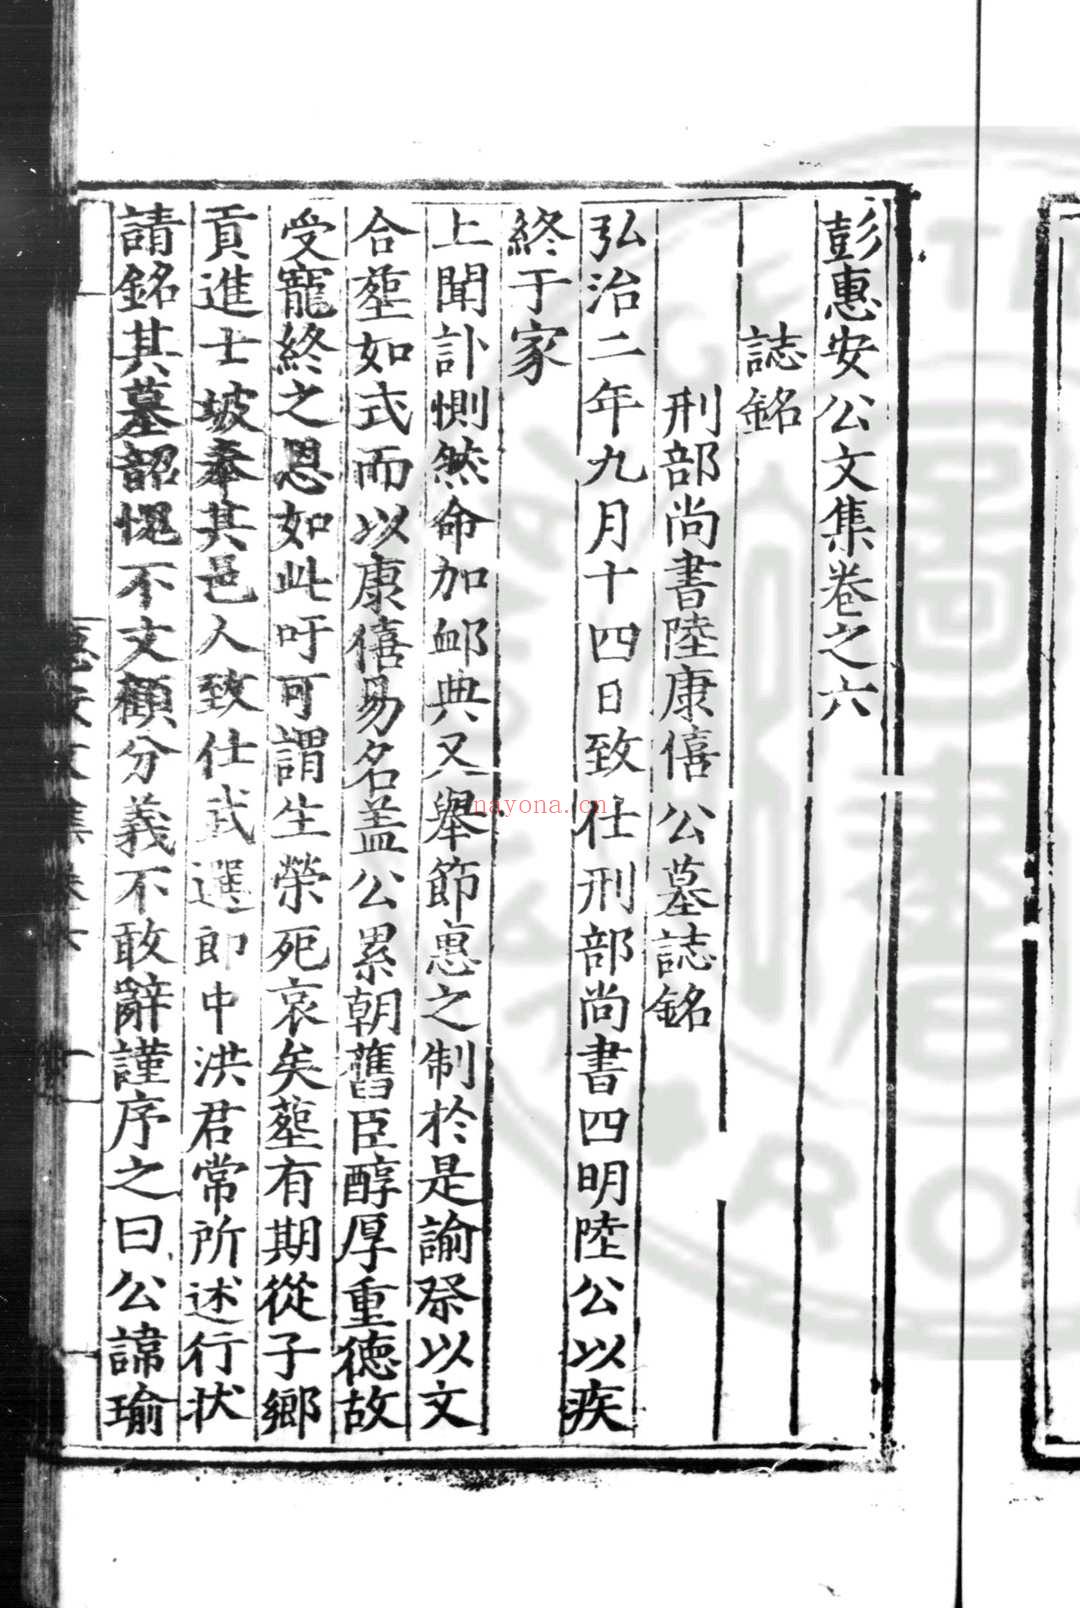 彭惠安公文集卷之六
誌銘
刑部尚書陸康僖公墓誌銘
弘治二年九月十四日致仕刑部尚書四明陸公以疾
終于家
上聞訃惻然命加卹典又舉節惠之制於是諭祭以文
合塟如式而以康僖易名盖公累朝舊臣醇厚重德故
受寵終之恩如此吁可謂生榮死哀矣塟有期從子鄉
貢進士坡奉其邑人致仕武選郎中洪君常所述行状
請銘其墓韶愧不文顧分義不敢辭謹序之曰公諱瑜
nayona.cn